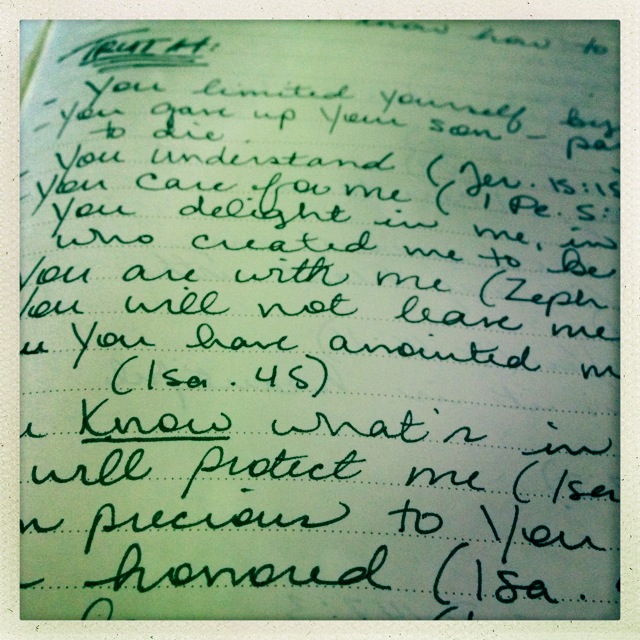 know how to
TRUTH:
You limited yourself
- You gave up your son -
to die
You understand (Jer. 15:15
You care for me (1 Pe. 5:
You delight in me, in
who created me to be
You are with me (Zeph
You will not leave me
You have anointed m
(Isa. 45)
Know what's in
will protect me (Isa
precious to You
honored (Isa.